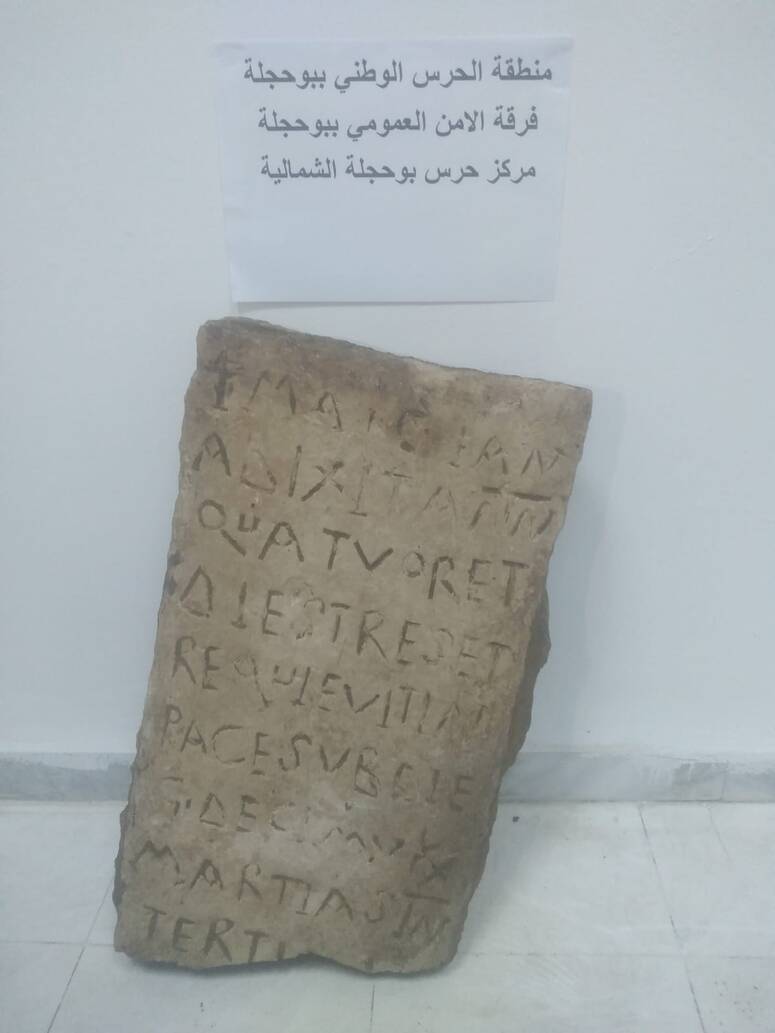 منطقة الحرس الوطني ببوحجلة
فرقة الامن العمومي ببوحجلة
مركز حرس بوحجلة الشمالية
ADIXITANN
QUATVORET
DIESTRESET
REQUIEVITIN
PACESVBDIE
MARTIASIN